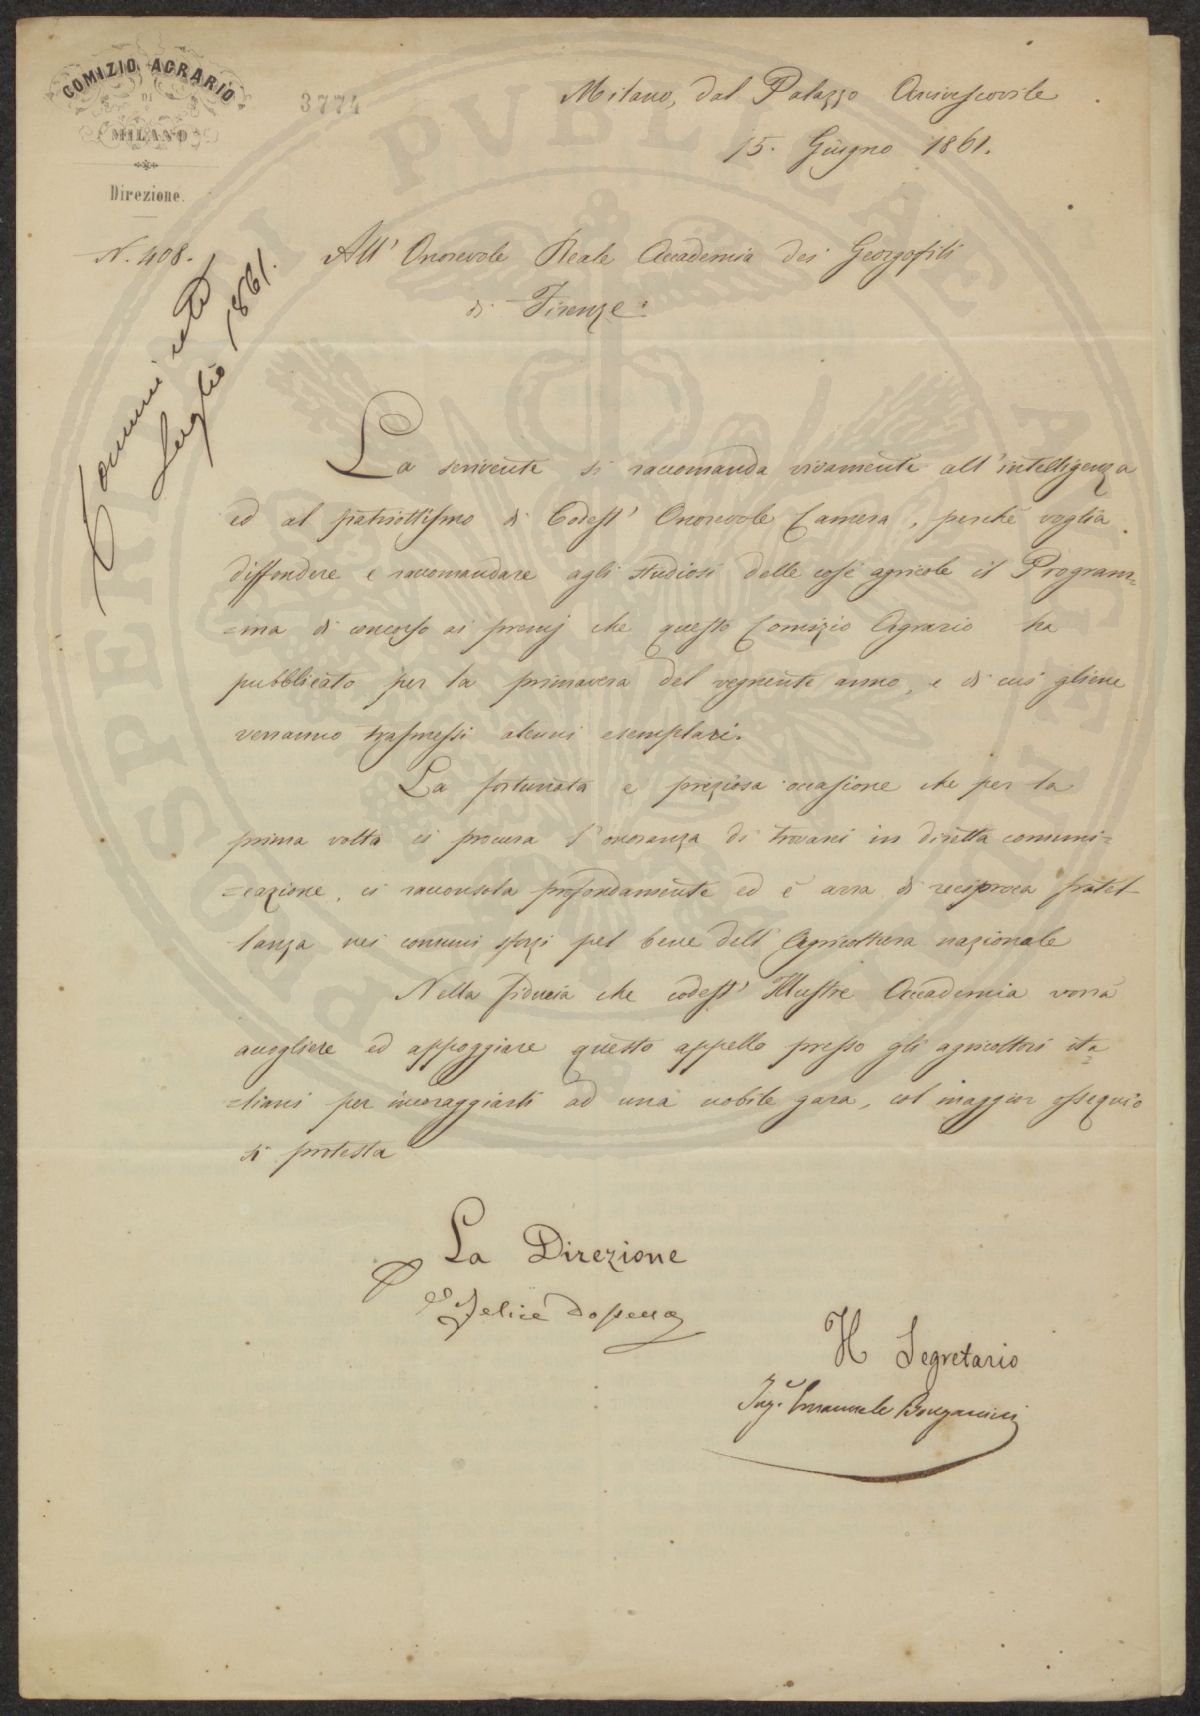 COMIZIO AGRARIO
DI
MILANO
Direzione.
3774
Milano, dal Palazzo Arcivescovile
15. Giugno 1861.
N. 408.
All' Onorevole Reale Accademia dei Georgofili
di Firenze.
Luglio 1861.
La scrivente si raccomanda vivamente all'intelligenza
ed al patriottismo di Codest' Onorevole Camera, perché voglia
diffondere e raccomandare agli studiosi delle cose agricole il Program=
=ma di concorso ai premj che questo Comizio Agrario ha
pubblicato per la primavera del vegnente anno, e di cui gliene
verranno trasmessi alcuni esemplari.
La fortunata e preziosa occasione che per la
prima volta ci procura l'onoranza di trovarci in diretta comuni=
=cazione, ci racconsola profondamente ed è arra di reciproca fratel-
lanza nei comuni sforzi pel bene dell'Agricoltura nazionale
Nella fiducia che codest' Illustre Accademia vorrà
accogliere ed appoggiare questo appello presso gli agricoltori ita=
=liani per incoraggiarli ad una nobile gara, col maggior ossequio
si protesta
La Direzione
Felice Dossena
Il Segretario
Ing.r Emanuele Bongarini
PROSPERITATI PVBLICAE AVGENDAE